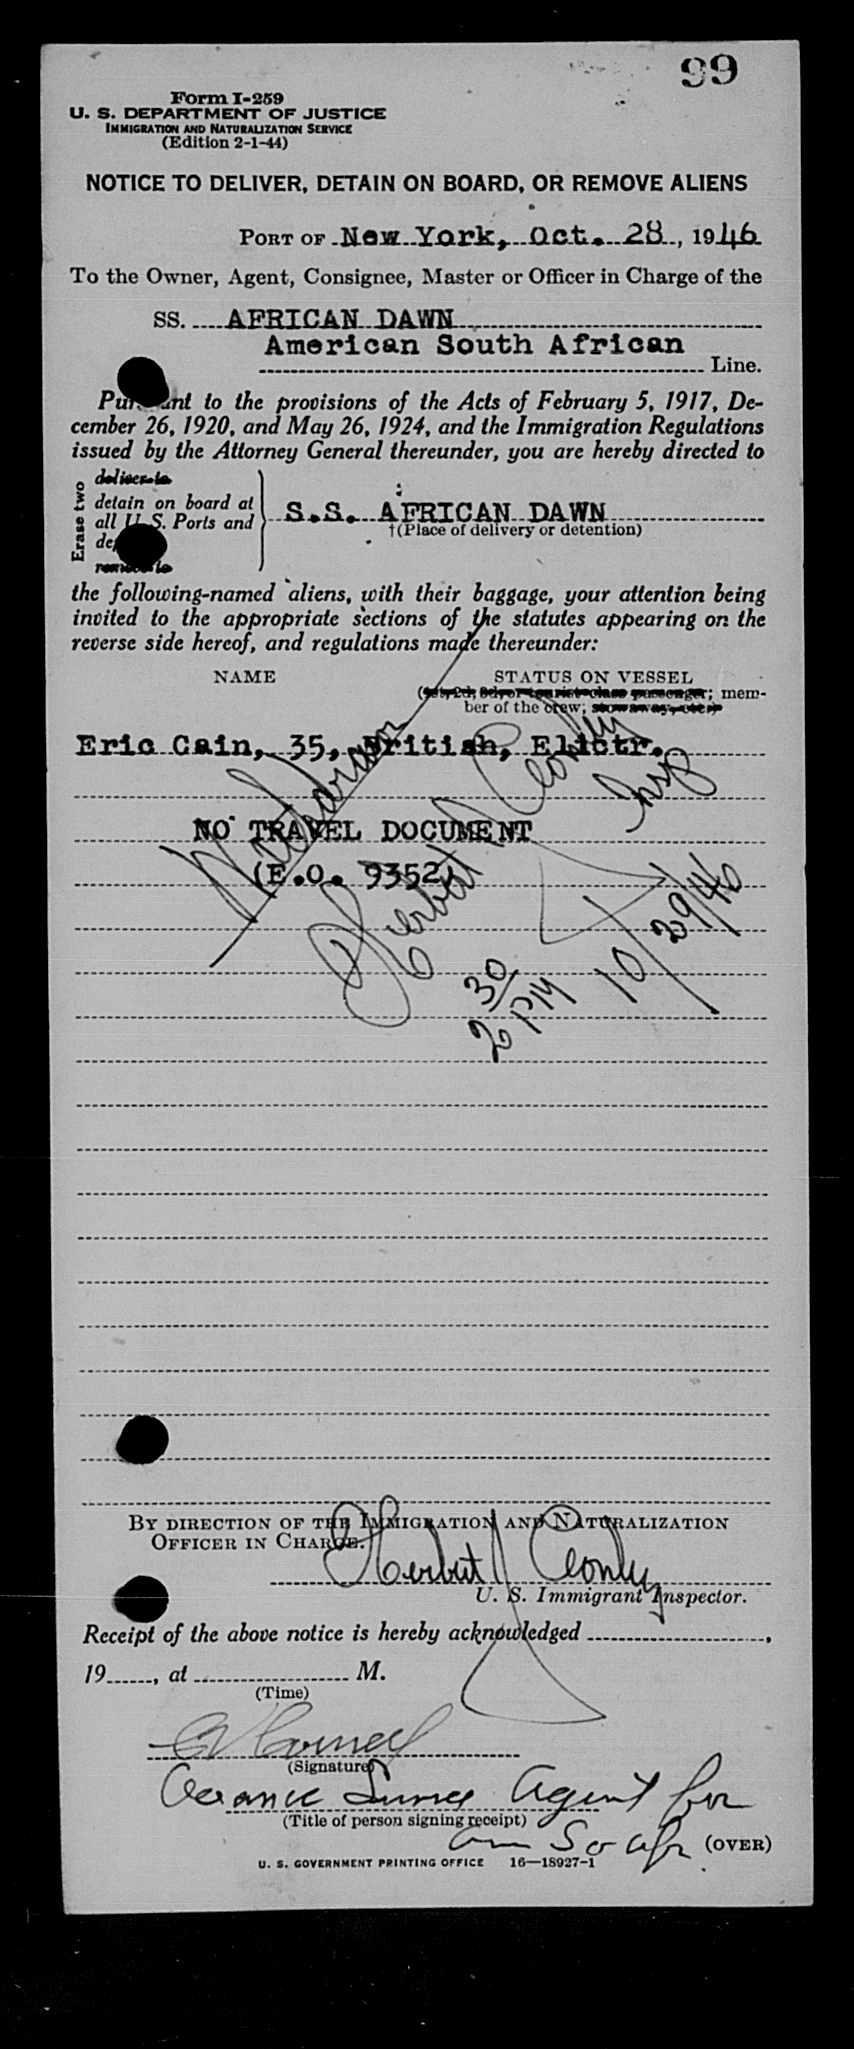 99
Form I-259
U. S. DEPARTMENT OF JUSTICE
IMMIGRATION AND NATURALIZATION SERVICE
(Edition 2-1-44)
NOTICE TO DELIVER, DETAIN ON BOARD, OR REMOVE ALIENS
PORT OF New York, Oct. 28, 1946
To the Owner, Agent, Consignee, Master or Officer in Charge of the
SS. AFRICAN DAWN
American South African
Line.
Pursuant to the provisions of the Acts of February 5, 1917, De-
cember 26, 1920, and May 26, 1924, and the Immigration Regulations
issued by the Attorney General thereunder, you are hereby directed to
Erase two
deliver to
detain on board at
all U. S. Ports and
remove to
S.S. AFRICAN DAWN
†(Place of delivery or detention)
the following-named aliens, with their baggage, your attention being
invited to the appropriate sections of the statutes appearing on the
reverse side hereof, and regulations made thereunder:
NAME STATUS ON VESSEL
passenger; mem-
ber of the crew; stowaway, etc.)
Eric Cain, 35, British, Elictr.
NO TRAVEL DOCUMENT
(E.O. 9352)
Herbert J Conly
Insp
10/29/46
2 30 PM
BY DIRECTION OF THE IMMIGRATION AND NATURALIZATION
OFFICER IN CHARGE.
Herbert J Conly
U. S. Immigrant Inspector.
Receipt of the above notice is hereby acknowledged
19, at M.
(Time)
(Signature)
Agent for
(Title of person signing receipt)
am So afr (OVER)
U. S. GOVERNMENT PRINTING OFFICE 16—18927-1